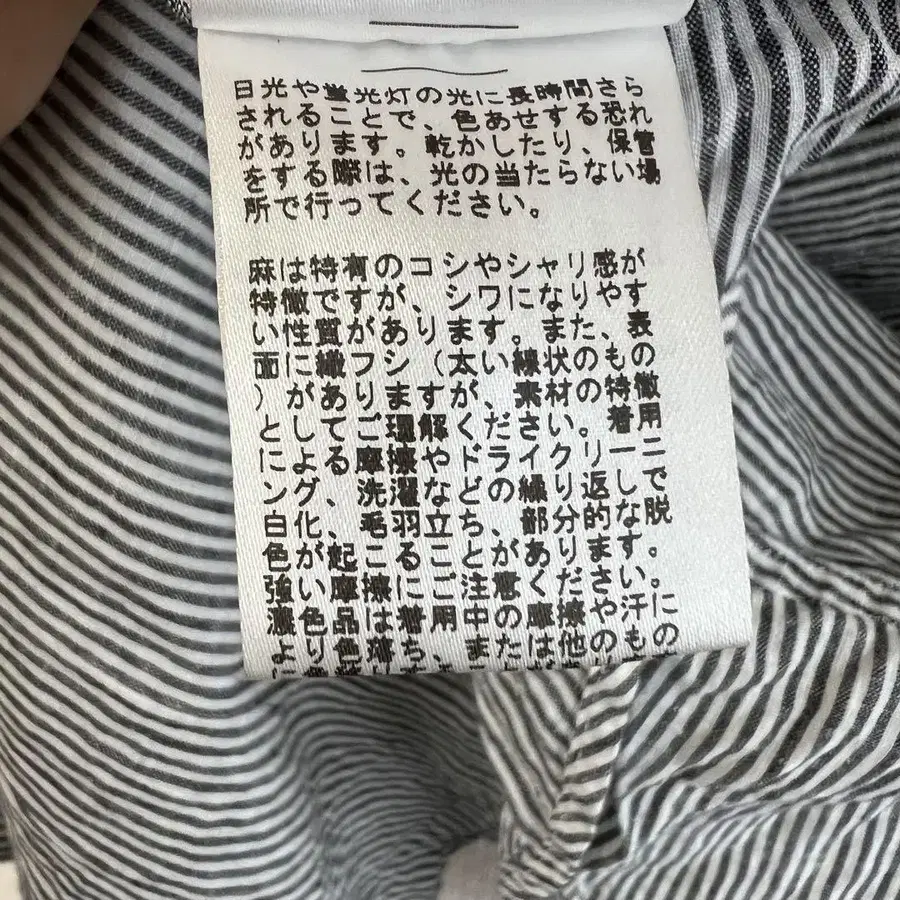 日光や蛍光灯の光に長時間さら
されることで、色あせする恐れ
があります。乾かしたり、保管
をする際は、光の当たらない場
所で行ってください。
麻は特有のコシやシャリ感が
特徴ですが、シワになりやす
い性質があります。また、表
面に織フシ(太い線状のもの
)がありますが、素材の特徴
としてご理解ください。着用
による摩擦やドライクリーニ
ング、洗濯などの繰り返しで
白化、毛羽立ち、部分的な脱
色が起こることがあります。
強い摩擦にご注意ください。
濃色品は着用中の摩擦や汗に
より色落ち、または他のもの